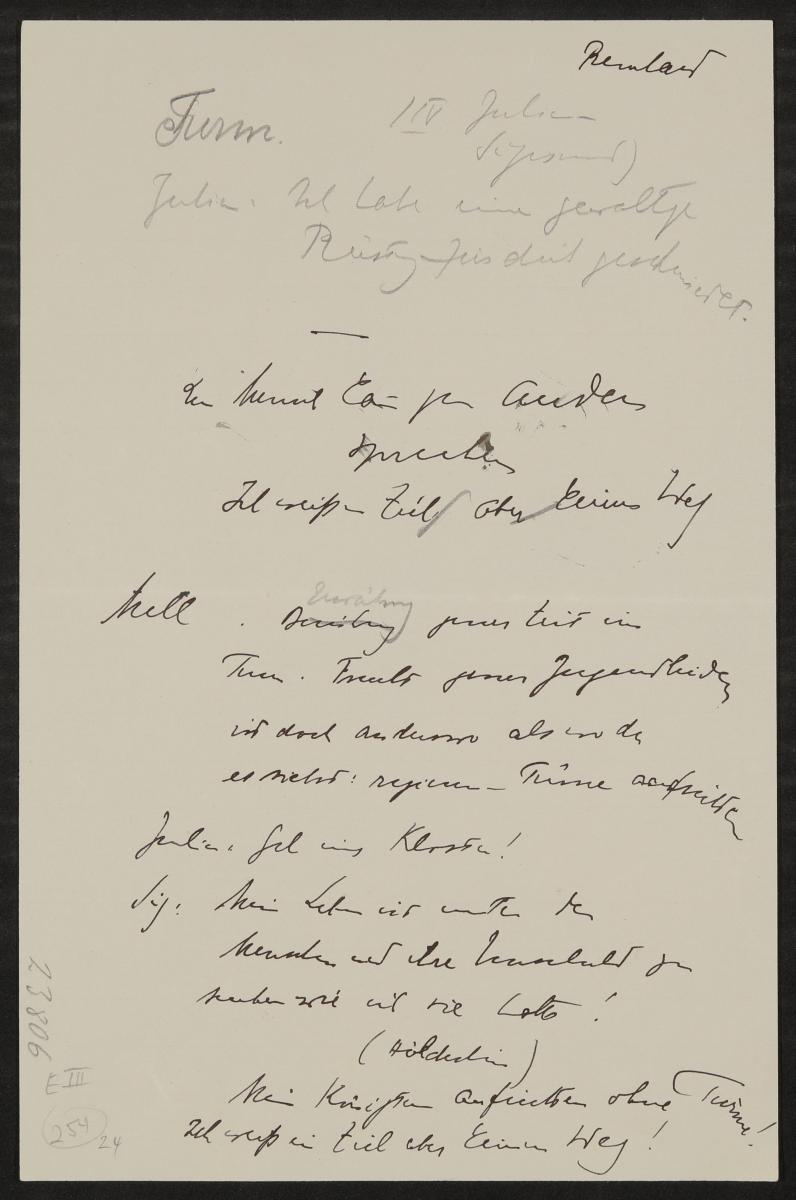 Turm.
IIV Julian
Sigismund)
Julian: Ich habe eine gewaltige
Rüstung für dich geschmiedet.
Mensch kann zum anderen
sprechen
Ich weiss ein Ziel aber keinen Weg
Erwähnung
jener Zeit im
Turm. Frucht jener Jugendleiden
ist doch anderswo als wo du
es siehst: regieren – Türme aufrichten
Julian: Geh ins Kloster!
Sig: Mein Leben ist unter den
Menschen und ihre Unschuld zu
wie ich sie hatte!
(Hölderlin)
Mein Königthum aufrichten ohne Türme!
Ich weiss ein Ziel aber keinen Weg!
23806
E III
254
24